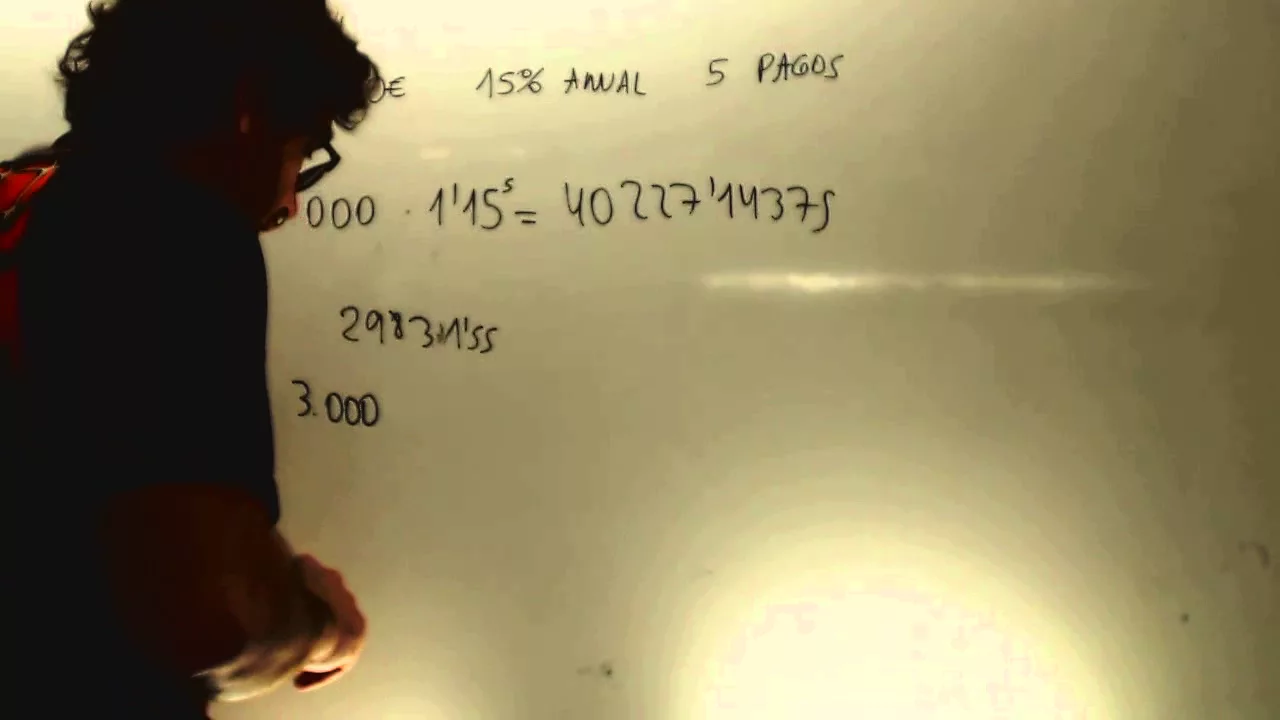 0€ 15% ANUAL 5 PAGOS
000 · 1'15⁵ = 40227'14375
29831'55
3.000